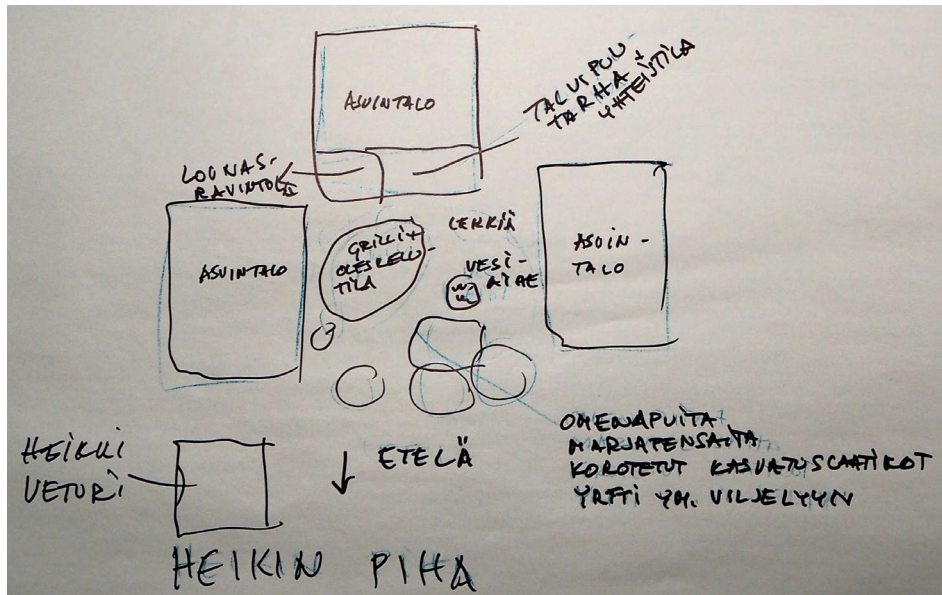 ASUINTALO
TALVIPUU-
TARHA +
YHTEISTILA
LOUNAS-
RAVINTOLA
ASUINTALO
GRILLI+
OLESKELU-
TILA
LEIKKIÄ
VESI-
AIHE
ASUIN-
TALO
OMENAPUITA
MARJAPENSAITA
KOROTETUT KASVATUSLAATIKOT
YRTTI YM. VILJELYYN
HEIKKI
VETURI
ETELÄ
HEIKIN PIHA